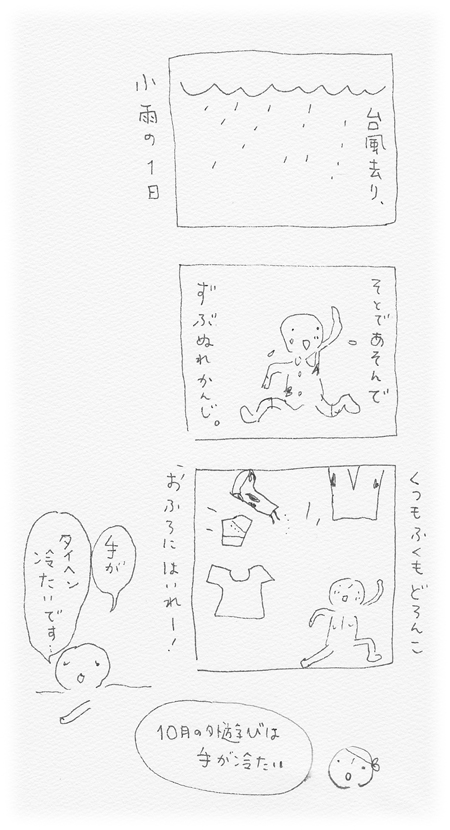 台風去り、
小雨の1日
そとであそんで
ずぶぬれかんじ。
くつもふくもどろんこ
おふろにはいれー!
手が
タイヘン
冷たいです…
10月の外遊びは
手が冷たい